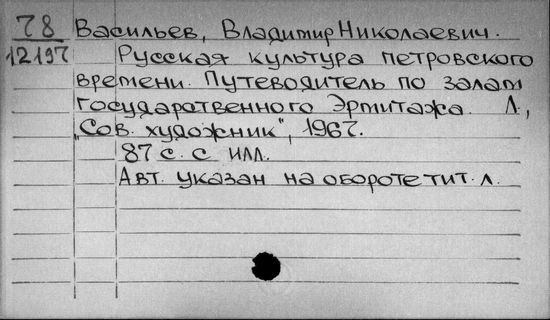 78 Васильев, Владимир Николаевич.
12197 Русская культура петровского
времени. Путеводитель по залам
Государственного Эрмитажа. Л.,
"Сов. художник", 1967.
87 с. с илл.
Авт. указан на обороте тит. л.